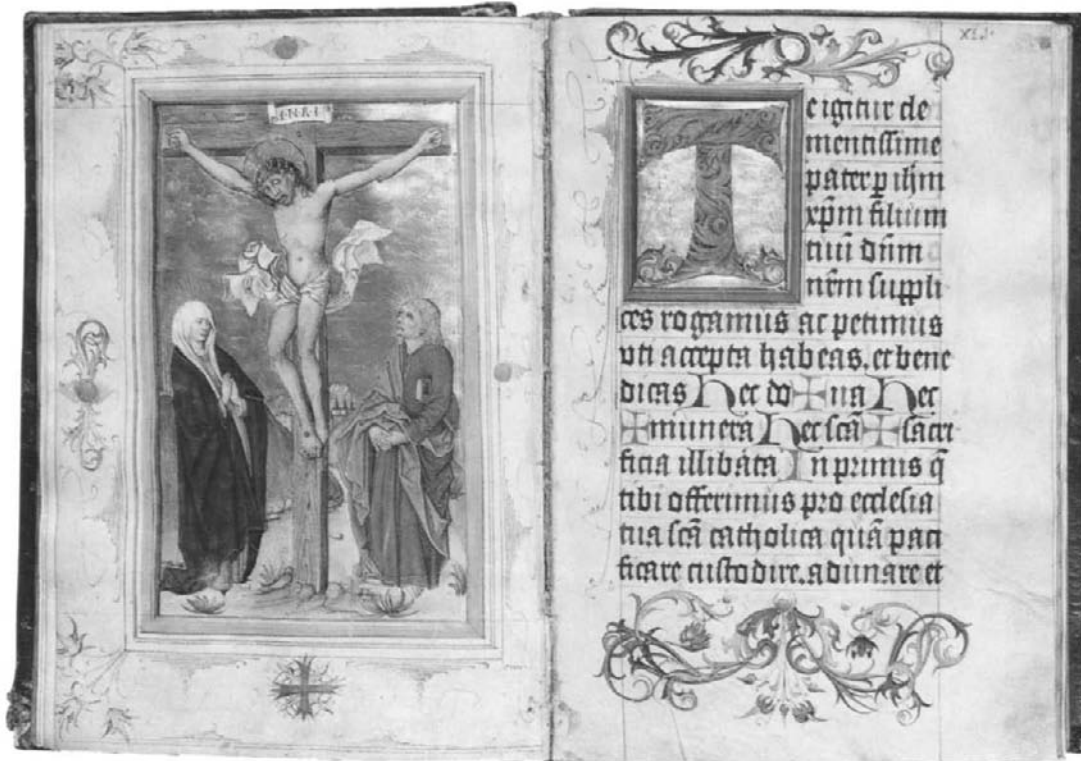 I·N·R·I
XLI·
Te igitur cle
mentissime
pater p̲ ih̄m
xp̄m filium
tuū dn̄m
nr̄m suppli
ces rogamus ac petimus
vti accepta habeas. et bene
dicas Hec do+na Hec
+munera Hec sc̄a+sacri
ficia illibata In primis q̄
tibi offerimus pro ecclesia
tua sc̄a catholica quā paci
ficare custodire. adunare et